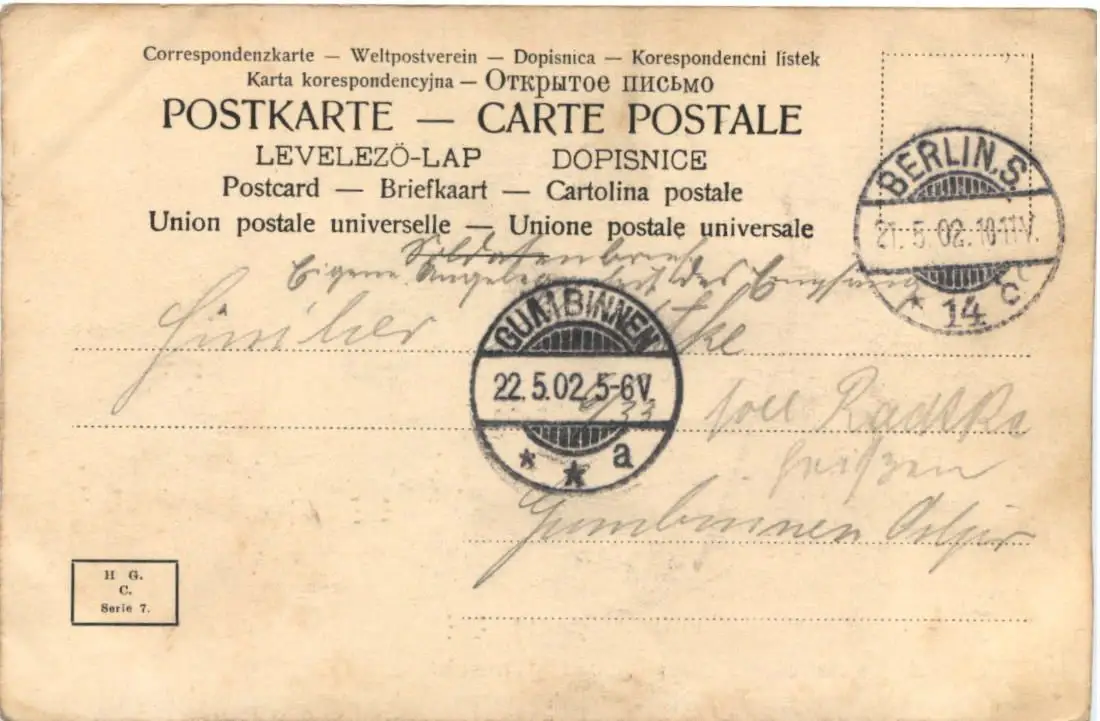 Correspondenzkarte — Weltpostverein — Dopisnica — Korespondencni listek
Karta korespondencyjna — Открытое письмо
POSTKARTE — CARTE POSTALE
LEVELEZÖ-LAP DOPISNICE
Postcard — Briefkaart — Cartolina postale
Union postale universelle — Unione postale universale
BERLIN. S.
21. 5. 02. 10-11V.
* 14 c
Soldatenbrief
Eigene Angelegenheit des Empfängers
GUMBINNEN
22. 5. 02. 5-6V.
* * a
soll Radtke
heißen
Gumbinnen
H G.
C.
Serie 7.